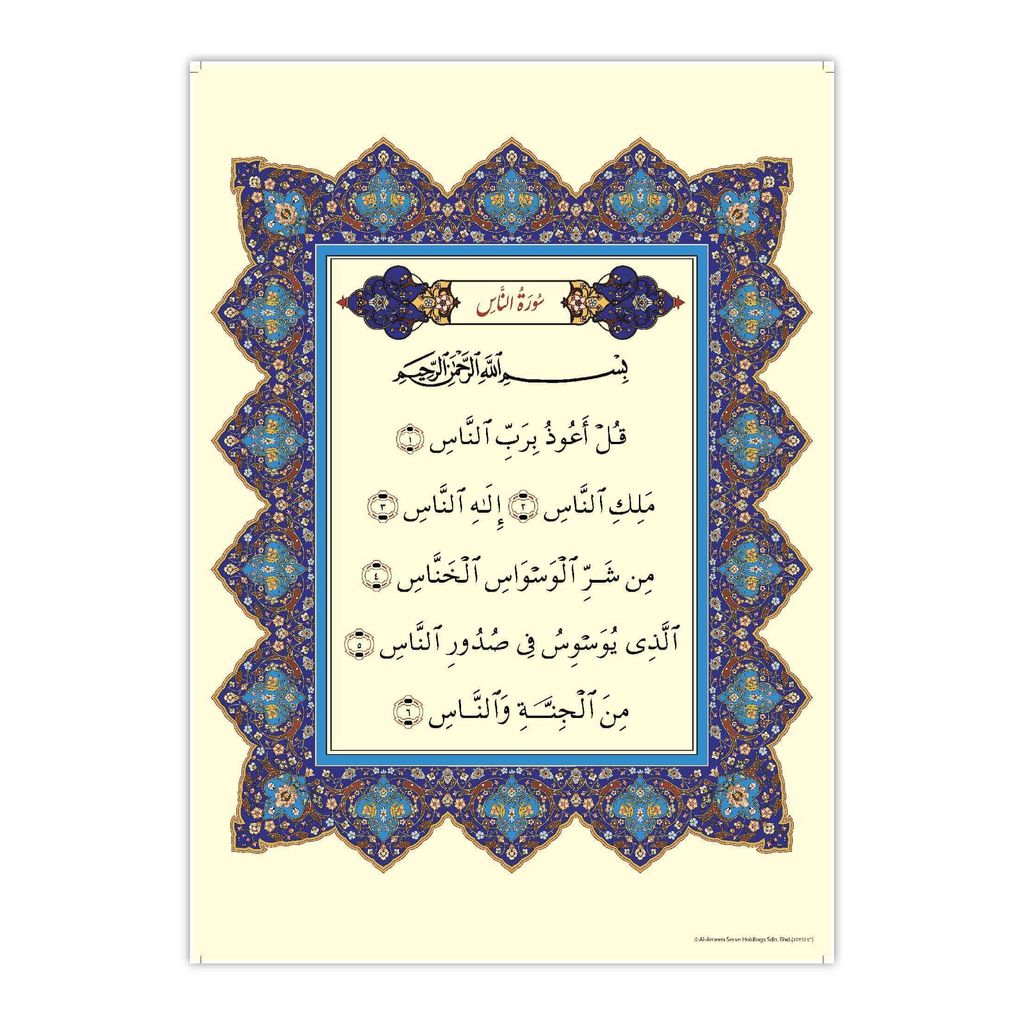 سُورَةُ النَّاسِ
بِسْمِ ٱللَّهِ ٱلرَّحْمَٰنِ ٱلرَّحِيمِ
قُلْ أَعُوذُ بِرَبِّ ٱلنَّاسِ ١
مَلِكِ ٱلنَّاسِ ٢ إِلَٰهِ ٱلنَّاسِ ٣
مِن شَرِّ ٱلْوَسْوَاسِ ٱلْخَنَّاسِ ٤
ٱلَّذِى يُوَسْوِسُ فِى صُدُورِ ٱلنَّاسِ ٥
مِنَ ٱلْجِنَّةِ وَٱلنَّاسِ ٦
Al-Ameen Serve Holdings Sdn. Bhd.